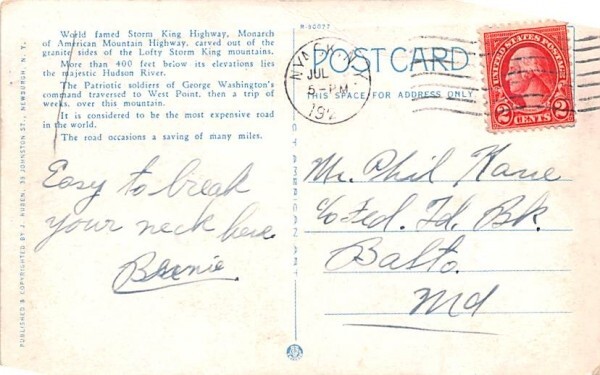 World famed Storm King Highway, Monarch
of American Mountain Highway, carved out of the
granite sides of the Lofty Storm King mountains.
More than 400 feet below its elevations lies
the majestic Hudson River.
The Patriotic soldiers of George Washington's
command traversed to West Point, then a trip of
weeks, over this mountain.
It is considered to be the most expensive road
in the world.
The road occasions a saving of many miles.
Easy to break
your neck here
Bernie
PUBLISHED & COPYRIGHTED BY J. RUBEN, 38 JOHNSTON ST., NEWBURGH, N. Y.
R-90077
POST CARD
THIS SPACE FOR ADDRESS ONLY
NYACK N.Y.
JUL
5-PM
192
UNITED STATES POSTAGE
2 CENTS 2
Mr. Phil Kane
c/o Fed. Ld. Bk.
Balto.
Md